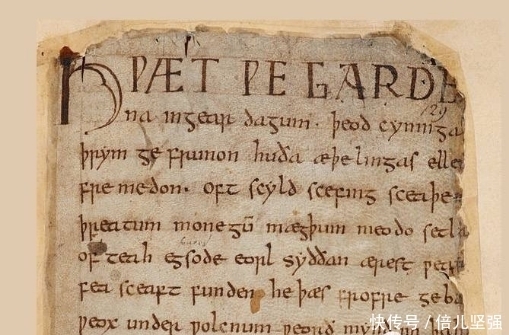 HǷÆT ǷE GARDE
na ingear dagum· þeod cyninga
þrym ge frunon huða æþelingas elle
fremedon· oft scyld scefing sceaþe
þreatum monegū mægþum meodo setla
of teah egsode eorl syððan ærest ƿear
fea sceaft funden he þæs frofre geba
ƿeox under ƿolcnum ƿeorð
快传号/倍儿坚强